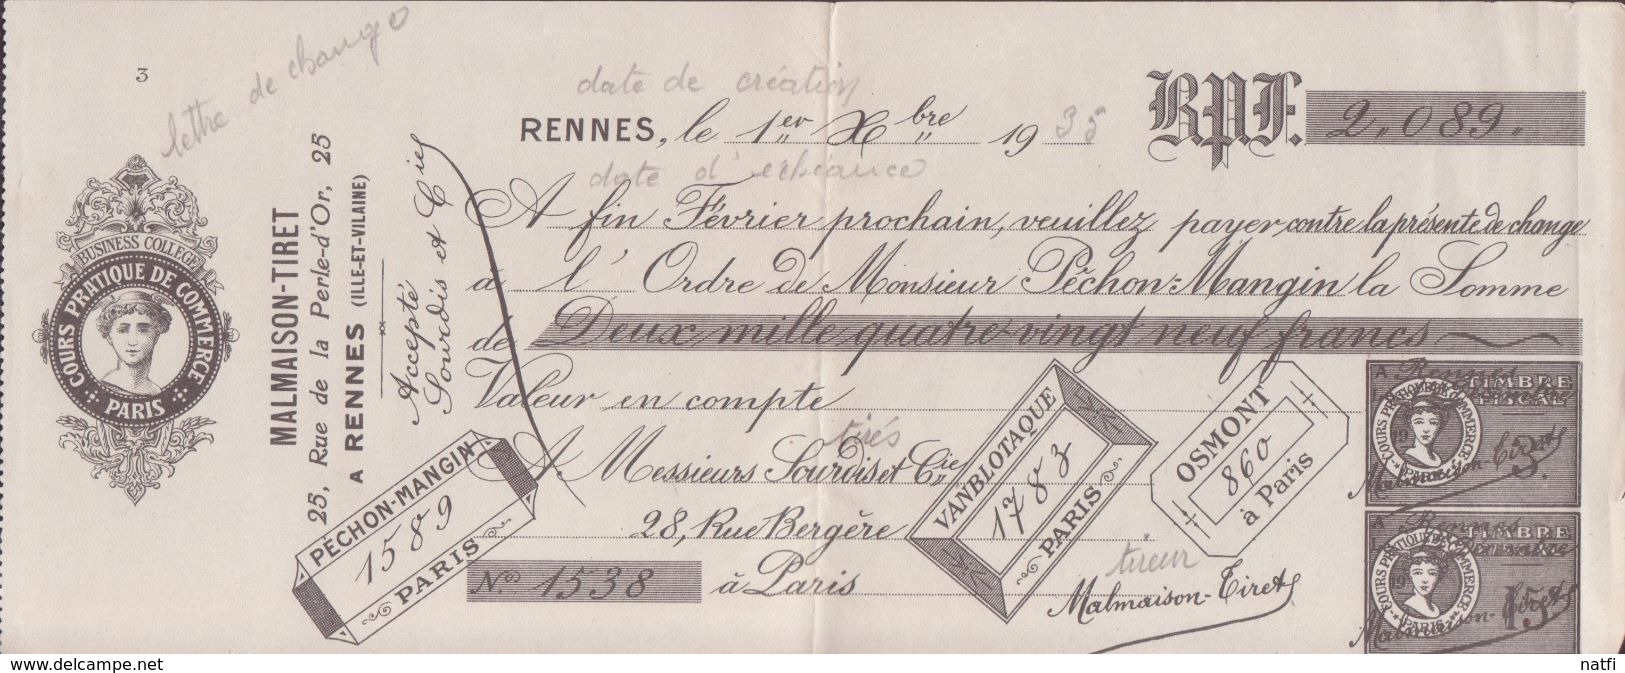 3
lettre de change
BUSINESS COLLEGE
COURS PRATIQUE DE COMMERCE
PARIS
MALMAISON-TIRET
25, Rue de la Perle-d'Or, 25
A RENNES (ILLE-ET-VILAINE)
Accepté
Sourdis et Cies
date de création
RENNES, le 1er Xbre 1935
B.P.F. 2.089.
date d'échéance
A fin Février prochain, veuillez payer contre la présente de change
à l'Ordre de Monsieur Péchon-Mangin la Somme
de Deux mille quatre-vingt neuf francs
Valeur en compte
tirés
A Messieurs Sourdis et Cie
28, Rue Bergère
No. 1538 à Paris
PÉCHON-MANGIN
1589
PARIS
VANBLOTAQUE
1783
PARIS
OSMONT
860
à Paris
tireur
Malmaison-Tiret
A Rennes
TIMBRE
COURS PRATIQUE DE COMMERCE
19
PARIS
Malmaison Tiret
A Rennes
TIMBRE
COURS PRATIQUE DE COMMERCE
19
PARIS
Malmaison-Tiret
www.delcampe.net
natfi